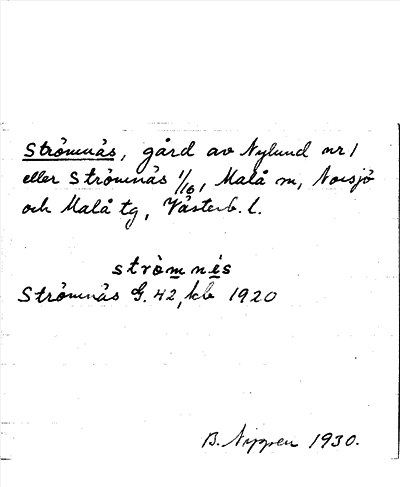 Strömnäs, gård av Nylund nr 1
eller Strömnäs 1/16, Malå sn, Norsjö
och Malå tg, Västerb. l.
strömnés
Strömnäs G. 42, kb 1920
B. Nygren 1930.